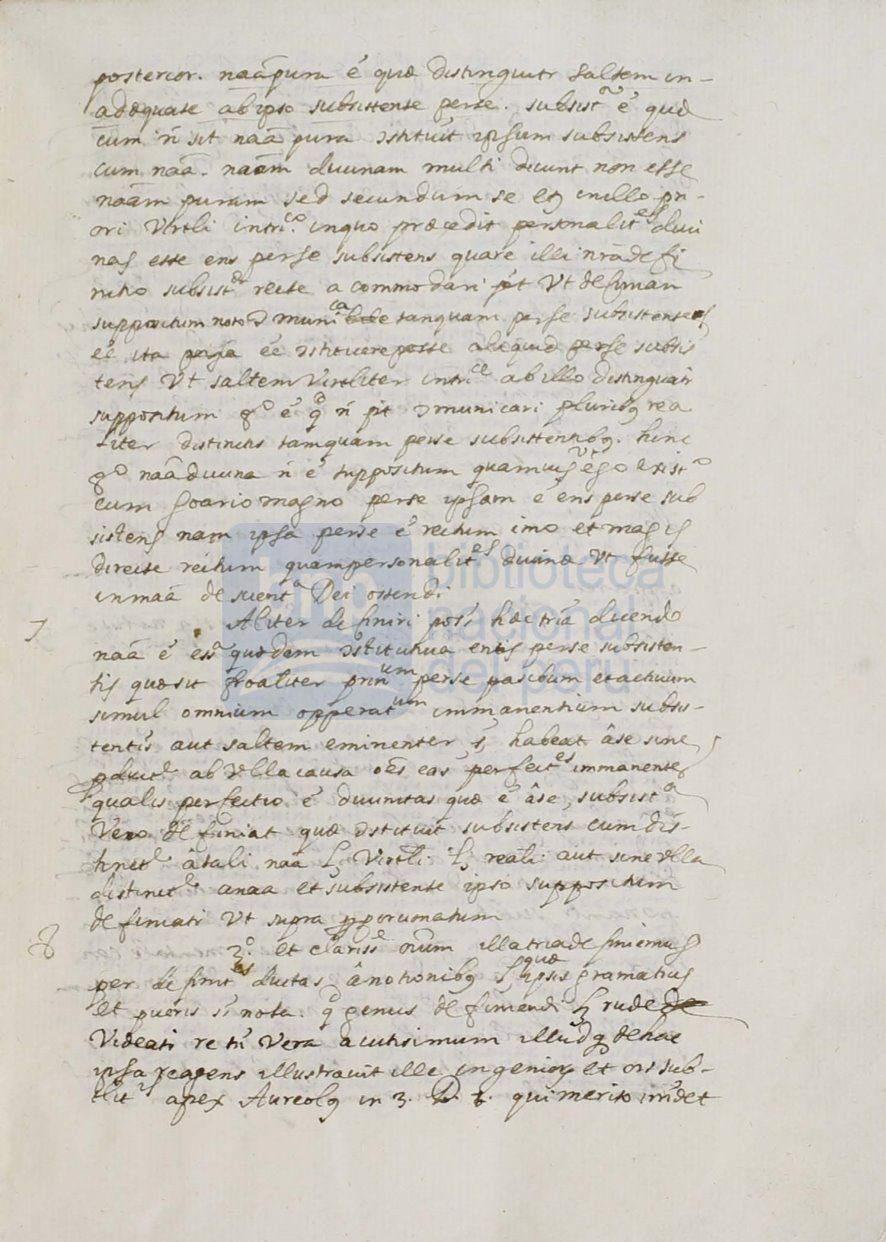 posterior. naã pura ẽ quæ distinguitr saltem in-
adæquate ab ipso subsistente perse. subsist.ª ẽ quæ
cum ñ sit naã pura ɔstituit ipsum subsistens
cum naã. naãm divinam multi dicunt non esse
naãm puram sed secundum se et in illo pri-
ori Virtli intri.co in quo præcedit personalit.es divi
nas esse ens perse subsistens quare illi nrã defi
nitio subsist.æ recte acommodari põt Vt definiant
suppositum noto ɔmunicabile tanquam perse subsistens
et ita persã ẽe ɔstituere posse aliquid perse subsis
tens Vt saltem Virtliter intri.ce ab illo distinguatr
suppositum gº ẽ q ñ põt ɔmunicari pluribꝰ rea
liter distinctis tamquam perse subsistentibꝰ. hinc
gº naã divina ñ ẽ suppositum quamvis Vt ego exist.º
cum soario magno perse ipsam ẽ ens perse sub
sistens nam ipsa perse ẽ rectum imo et magis
directe rectum quam personalit.es divinæ Vt fusse
in maã de scient.ª Dei ostendi
7 Aliter definiri poss haec tria dicendo
naã ẽ ess.ª quædam ɔstitutiva entis perse subsisten-
tis quæ sit froaliter prin.um perse pasibum et activum
simul omnium opperat.um immanentium subsis-
tentis aut saltem eminenter habeat âse sine
ab Vlla causa oẽs eas perfect.es immanentes
qualis perfectio ẽ divinitas quæ ẽ âse, subsist.ª
Vero definiat quæ ɔstituit subsistens cum dis-
tinct.e â tali naã l; Virtli l; reali aut sine Vlla
distinct.e a naa et subsistente ipso suppositum
definiatr Vt supra
8 3.º et clariss.e oium illa tria definiemus
per definit.es ductas â notionibꝰ quæ ipsis gramaticis
et pueris st notæ. q genus definiendi l; rude
Videatr re tñ Vera acutisimum illudqꝫ de hac
ipsa re agens illustravit ille ingenioꝝ et ors sub-
tilit.is apex Aureolꝰ in 3. D. 1. qui merito irridet